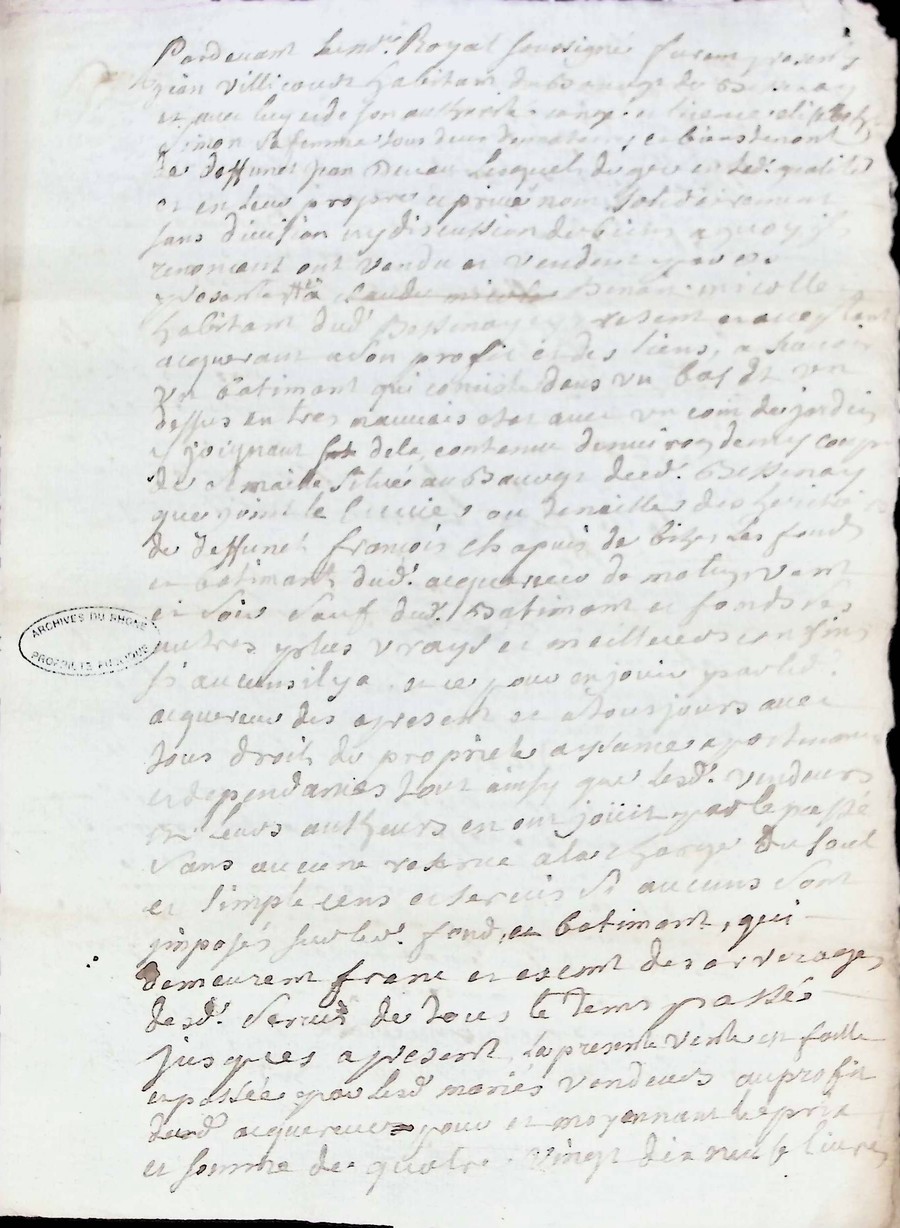 Pardevant le no.re Royal soussigné furent presents
jean villicourt habitant du Bourg de Bessenay
et avec luy et de son authorité et licence elisabet
Simon sa femme tous deux et bientenent
de deffunct jean lesquels de gré en lesd. qualités
et en leur propre et privé nom solidairement
sans division ny discussion de biens a quoy ils
renoncent ont vendu et vendent par ces
presentes à Benoit micolle
habitant dud. Bessenay present et acceptant
acquerant a son profit et des siens, a scavoir
un batimant qui consiste dans un bas et un
dessus en tres mauvais etat avec un coin de jardin
y joignant de la contenue denviron demy coupe
de scitué au Bourg dud. Bessenay
que joint le des heritiers
de deffunct françois Chapuis de bize, les fonds
et batimants dud. acquereur de matin vent
et soir sauf dud. Batimant et fonds ses
autres plus vrays et meilleurs confins
si aucuns il y a, et ce pour en jouir par led.
acquereur des apresent et a tousjours avec
tous droits de propriété aysances apartenances
et dependances tout ainsy que lesd. vendeurs
et leurs autheurs en ont joüit par le passé
sans aucune reserve à la charge du seul
et simple cens et servis si aucuns sont
jmposés sur led. fond, et batiment, qui
demeurent franc et exemt des arrerages
desd. servis de tous le tems passés
jusques apresent, la presente vente est faitte
et passée par lesd. mariés vendeurs au profit
dud. acquereur pour et moyennant le prix
et somme de quatre vingt dix neuf livres
ARCHIVES DU RHONE
PROPRIETE PUBLIQUE